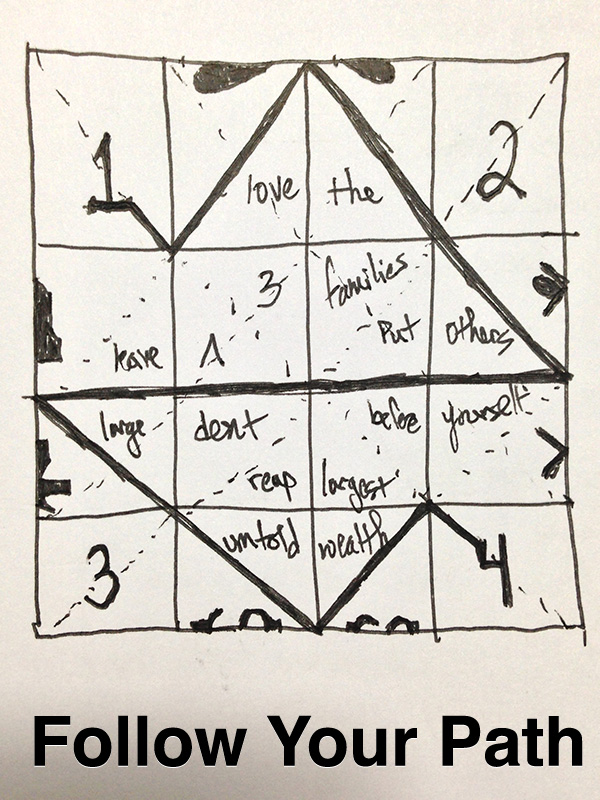 1 2
love the
3 families
leave A Put others
large dent before yourself
reap largest
untold wealth
3 4
Follow Your Path